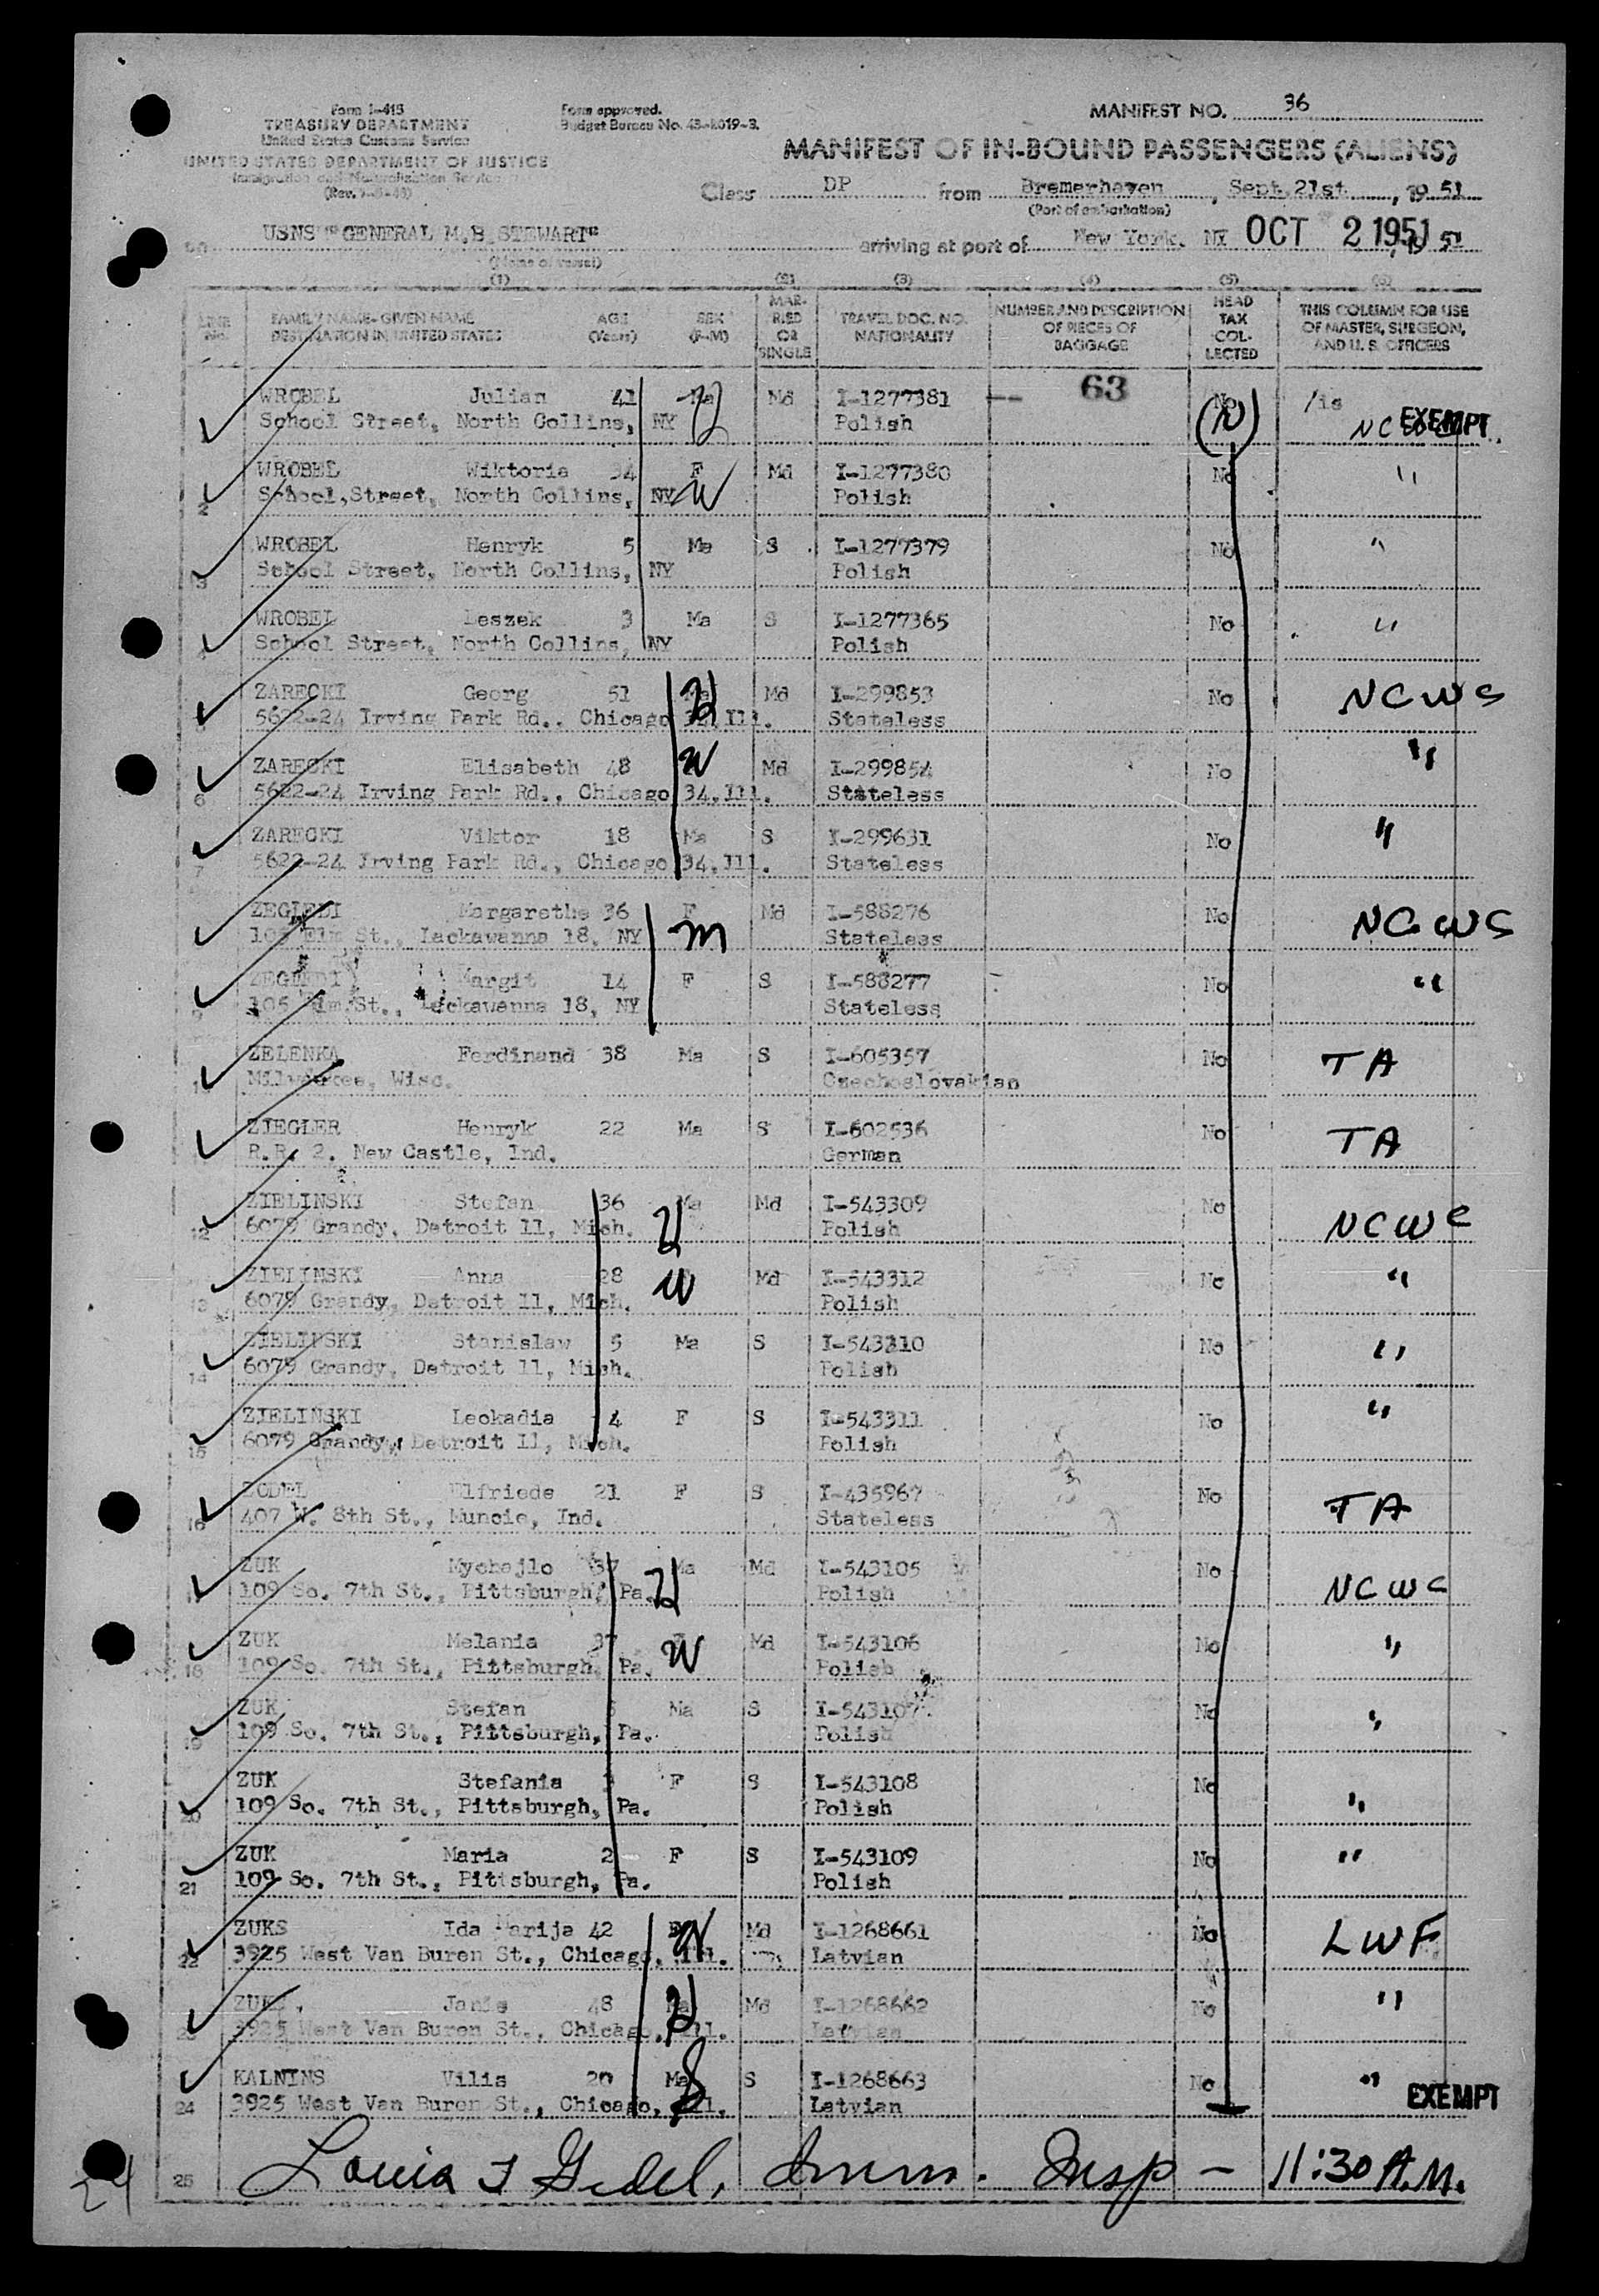 Form I-415
TREASURY DEPARTMENT
United States Customs Service
UNITED STATES DEPARTMENT OF JUSTICE
Immigration and Naturalization Service
Form approved.
Budget Bureau No. 43-R019-3.
MANIFEST NO. 36
MANIFEST OF IN-BOUND PASSENGERS (ALIENS)
Class DP from Bremerhaven, Sept. 21st, 1951
(Port of embarkation)
on USNS "GENERAL M.B. STEWART" arriving at port of New York. NY OCT 2 1951, 19 51
(Name of vessel)
(1) (2) (3) (4) (5) (6)
LINE No. FAMILY NAME-GIVEN NAME DESTINATION IN UNITED STATES AGE (Years) SEX (F-M) MARRIED OR SINGLE TRAVEL DOC. NO. NATIONALITY NUMBER AND DESCRIPTION OF PIECES OF BAGGAGE HEAD TAX COLLECTED THIS COLUMN FOR USE OF MASTER, SURGEON, AND U. S. OFFICERS
WROBEL Julian 41 Ma H Md I-1277381 -- 63 No /is
School Street, North Collins, NY Polish (N) EXEMPT
2 WROBEL Wiktoria 34 F W Md I-1277380 No "
School,Street, North Collins, NY Polish
3 WROBEL Henryk 5 Ma S I-1277379 No "
School Street, North Collins, NY Polish
4 WROBEL Leszek 3 Ma S I-1277365 No "
School Street, North Collins, NY Polish
5 ZARECKI Georg 51 Ma H Md I-299853 No NCWS
5622-24 Irving Park Rd., Chicago 34.Ill. Stateless
6 ZARECKI Elisabeth 48 W Md I-299854 No "
5622-24 Irving Park Rd., Chicago 34.Ill. Stateless
7 ZARECKI Viktor 18 Ma S I-299631 No "
5622-24 Irving Park Rd., Chicago 34.Ill. Stateless
ZEGLEDI Margarethe 36 F m Md I-588276 No NCWS
105 Elm St., Lackawanna 18, NY Stateless
9 ZEGLEDI Margit 14 F S I-588277 No "
105 Elm St., Lackawanna 18, NY Stateless
ZELENKA Ferdinand 38 Ma S I-605357 No TA
Milwaukee, Wisc. Czechoslovakian
ZIEGLER Henryk 22 Ma S I-602536 No TA
R.R. 2. New Castle, Ind. German
12 ZIELINSKI Stefan 36 Ma H Md I-543309 No NCWC
6079 Grandy, Detroit 11, Mich. Polish
13 ZIELINSKI Anna 28 W Md I-543312 No "
6079 Grandy, Detroit 11, Mich. Polish
14 ZIELINSKI Stanislaw 5 Ma S I-543310 No "
6079 Grandy, Detroit 11, Mich. Polish
15 ZIELINSKI Leokadia 4 F S I-543311 No "
6079 Grandy, Detroit 11, Mich. Polish
16 ZODEL Elfriede 21 F S I-435967 No TA
407 W. 8th St., Muncie, Ind. Stateless
17 ZUK Mychajlo 37 Ma H Md I-543105 No NCWC
109 So. 7th St., Pittsburgh, Pa. Polish
18 ZUK Melania 37 W Md I-543106 No "
109 So. 7th St., Pittsburgh, Pa. Polish
19 ZUK Stefan Ma S I-543107 No "
109 So. 7th St., Pittsburgh, Pa. Polish
20 ZUK Stefania F S I-543108 No "
109 So. 7th St., Pittsburgh, Pa. Polish
21 ZUK Maria 2 F S I-543109 No "
109 So. 7th St., Pittsburgh, Pa. Polish
22 ZUKS Ida Marija 42 W Md I-1268661 No LWF
3925 West Van Buren St., Chicago, Ill. Latvian
23 ZUKS Janis 48 Ma H Md I-1268662 No "
3925 West Van Buren St., Chicago, Ill. Latvian
24 KALNINS Vilis 20 Ma S I-1268663 No "
3925 West Van Buren St., Chicago, Ill. Latvian EXEMPT
25 Louis Gedel, Imm. Insp - 11:30 A.M.
24